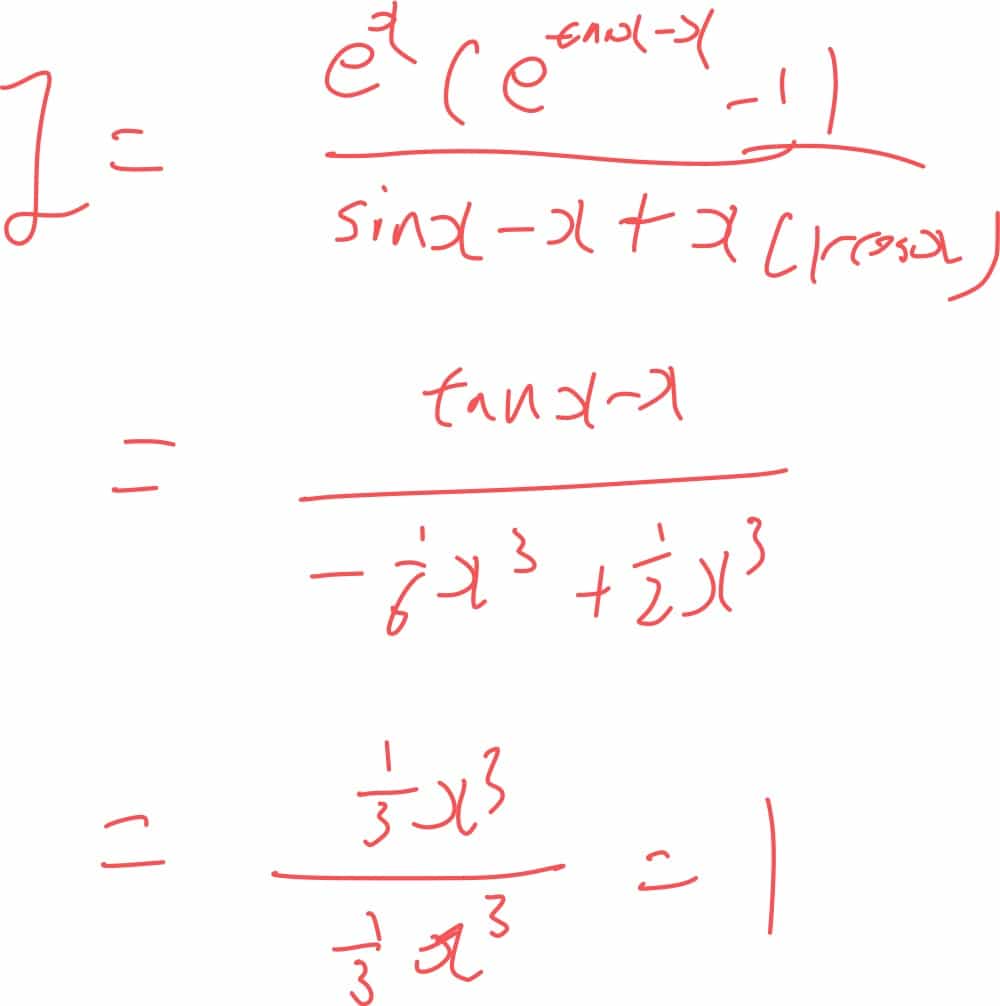 I = \frac{e^x (e^{\tan x - x} - 1)}{\sin x - x + x (1 - \cos x)}
= \frac{\tan x - x}{-\frac{1}{6}x^3 + \frac{1}{2}x^3}
= \frac{\frac{1}{3}x^3}{\frac{1}{3}x^3} = 1